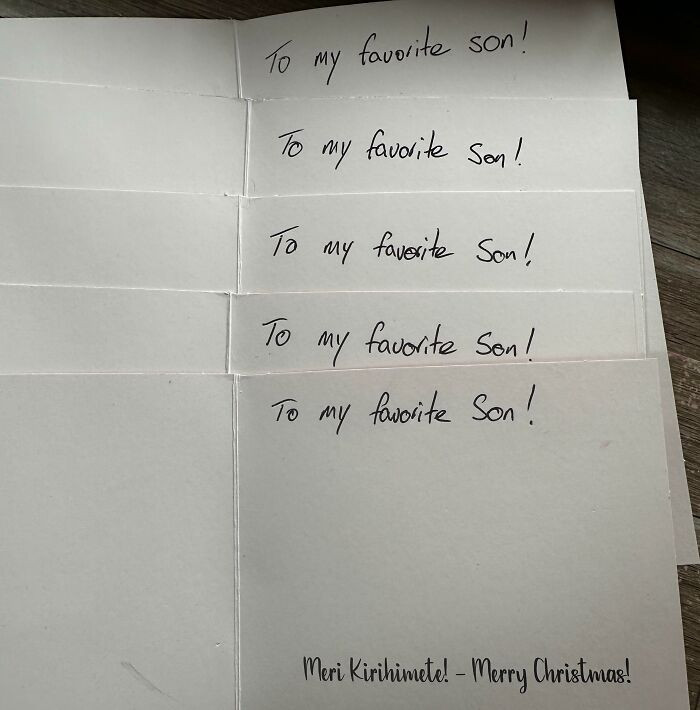 To my favorite son!
To my favorite Son!
To my favorite Son!
To my favorite Son!
To my favorite Son!
Meri Kirihimete! - Merry Christmas!